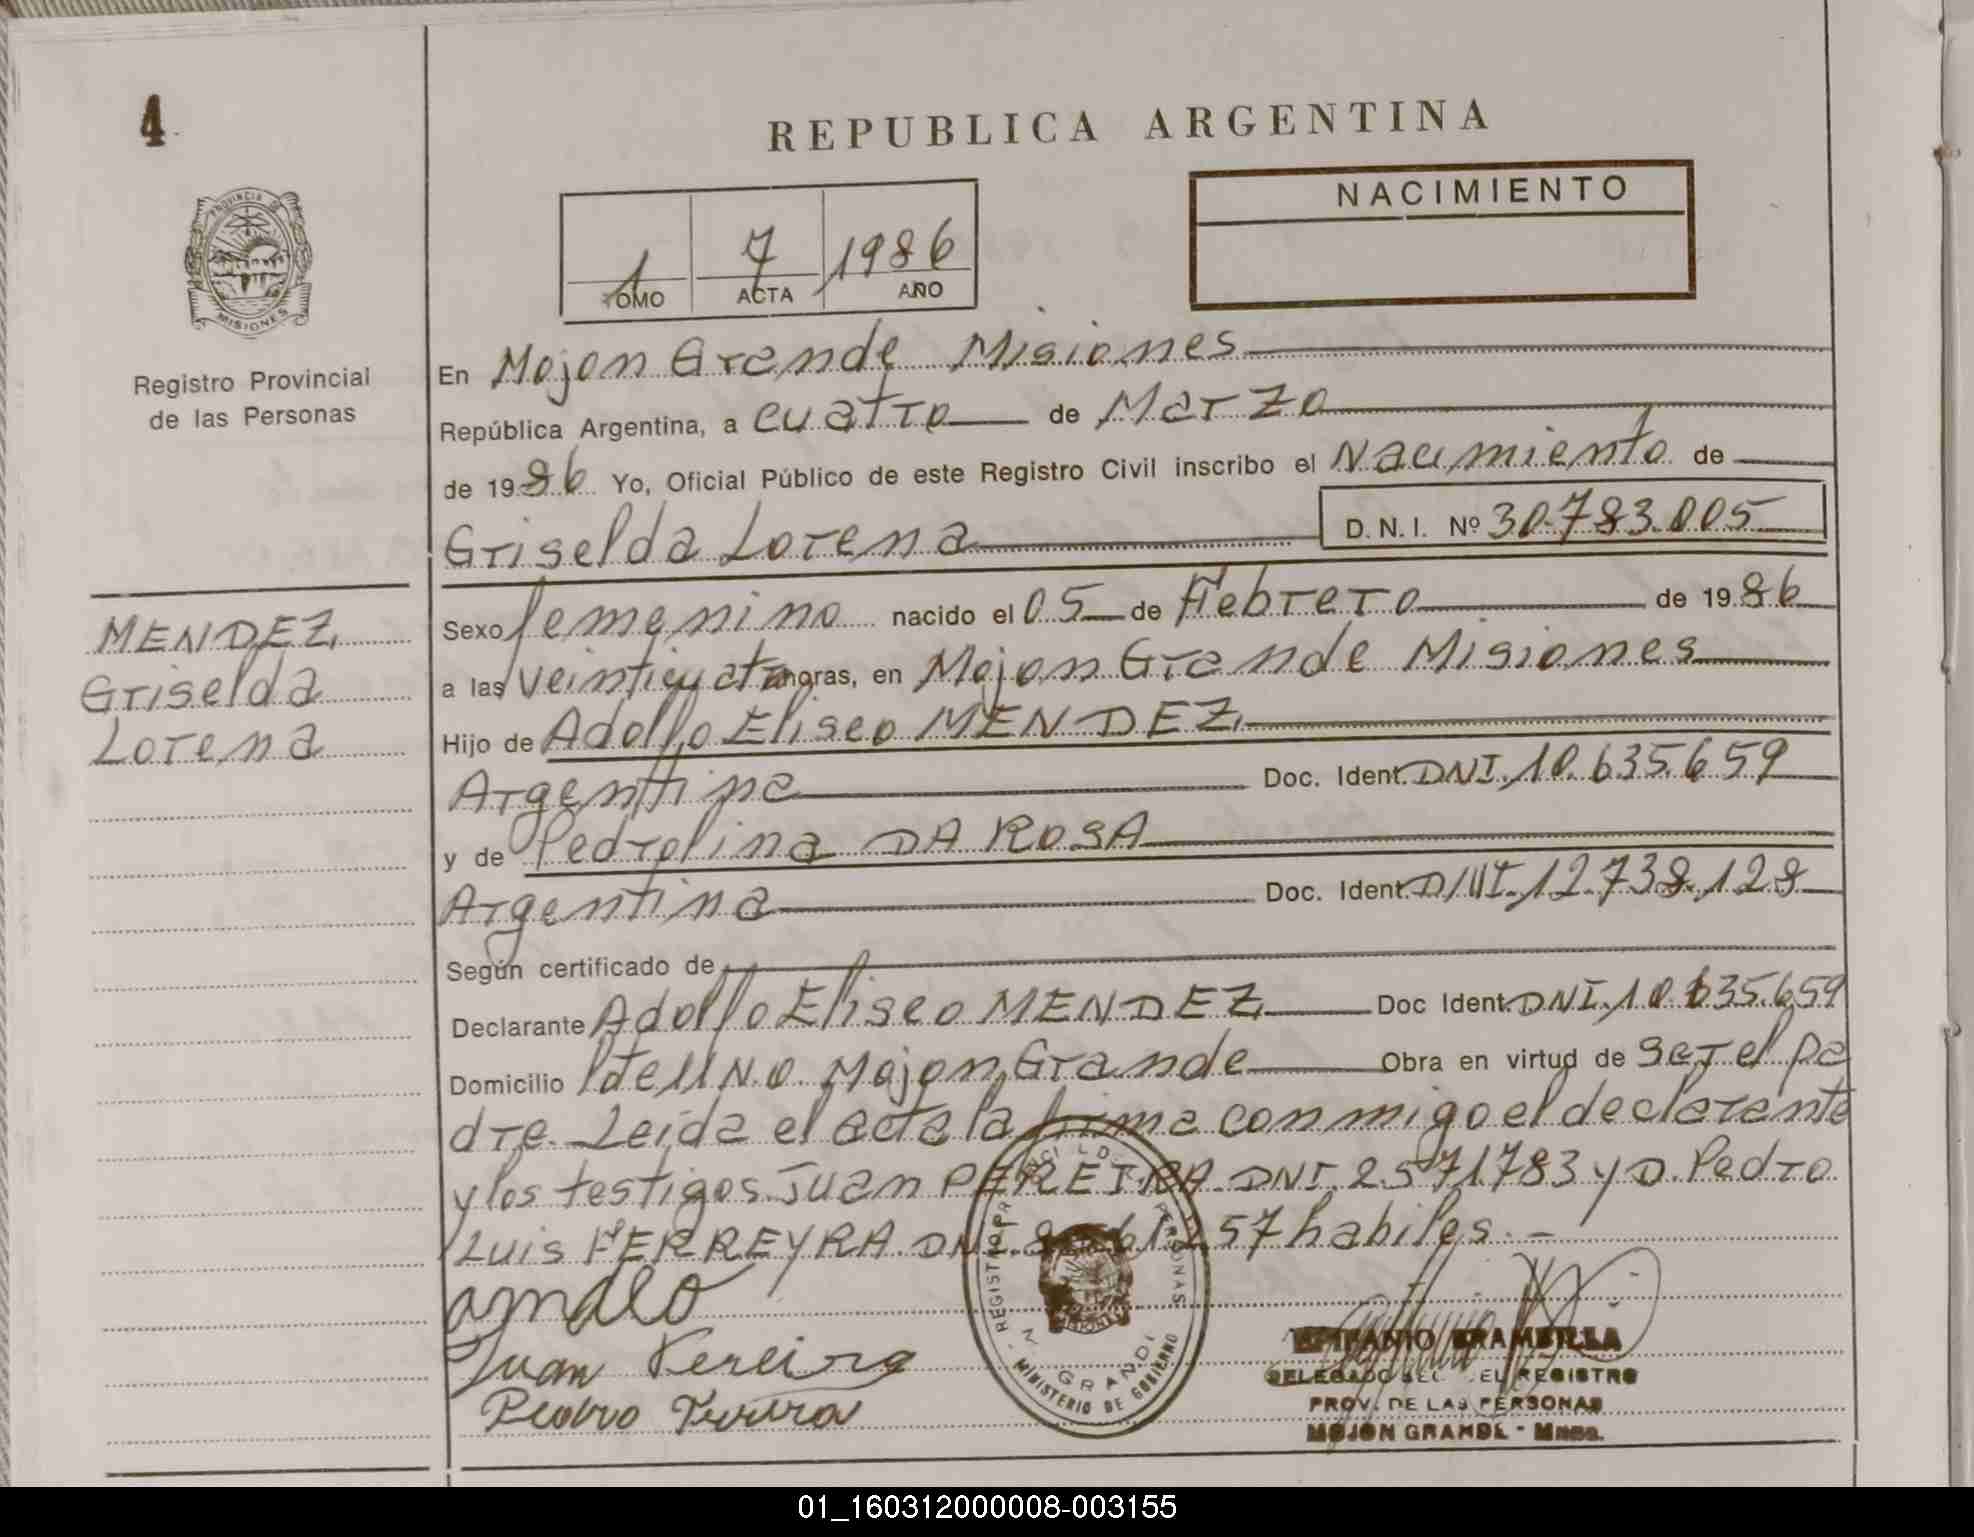 4
REPUBLICA ARGENTINA
PROVINCIA DE
MISIONES
NACIMIENTO
1 7 1986
TOMO ACTA AÑO
Registro Provincial
de las Personas
En Mojon Grande Misiones
República Argentina, a cuatro de Marzo
de 1986 Yo, Oficial Público de este Registro Civil inscribo el Nacimiento de
Griselda Lorena D.N.I. Nº 30.783.005
MENDEZ
Griselda
Lorena
Sexo femenino nacido el 05 de Febrero de 1986
a las veinticuatro horas, en Mojon Grande Misiones
Hijo de Adolfo Eliseo MENDEZ
Argentina Doc. Ident. DNI. 10.635.659
y de Pedrolina DA ROSA
Argentina Doc. Ident. DNI. 12.738.128
Según certificado de
Declarante Adolfo Eliseo MENDEZ Doc Ident. DNI. 10.635.659
Domicilio Mojon Grande Obra en virtud de ser el pa
dre. Leida el acta la firma conmigo el declarante
y los testigos Juan PEREIRA DNI. 2571783 y D. Pedro
Luis FERREYRA DNI. 257 habiles. -
Juan Pereira
Pedro
REGISTRO PERSONAS
M. GRANDE
MINISTERIO DE GOBIERNO
EPIFANIO BRAMBILLA
DELEGADO DEL REGISTRO
PROV. DE LAS PERSONAS
MOJON GRANDE - Mnes.
01_160312000008-003155